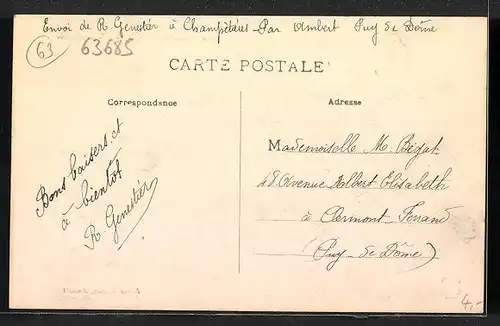 Envoi de R. Genestier à Champétières Par Ambert Puy de Dôme
63 63685
CARTE POSTALE
Correspondance
Adresse
Bons baisers et
à bientôt
R Genestier
Mademoiselle M. Bigat
Avenue Albert Elisabeth
à Clermont Ferrand
(Puy-de Dôme)
4,-